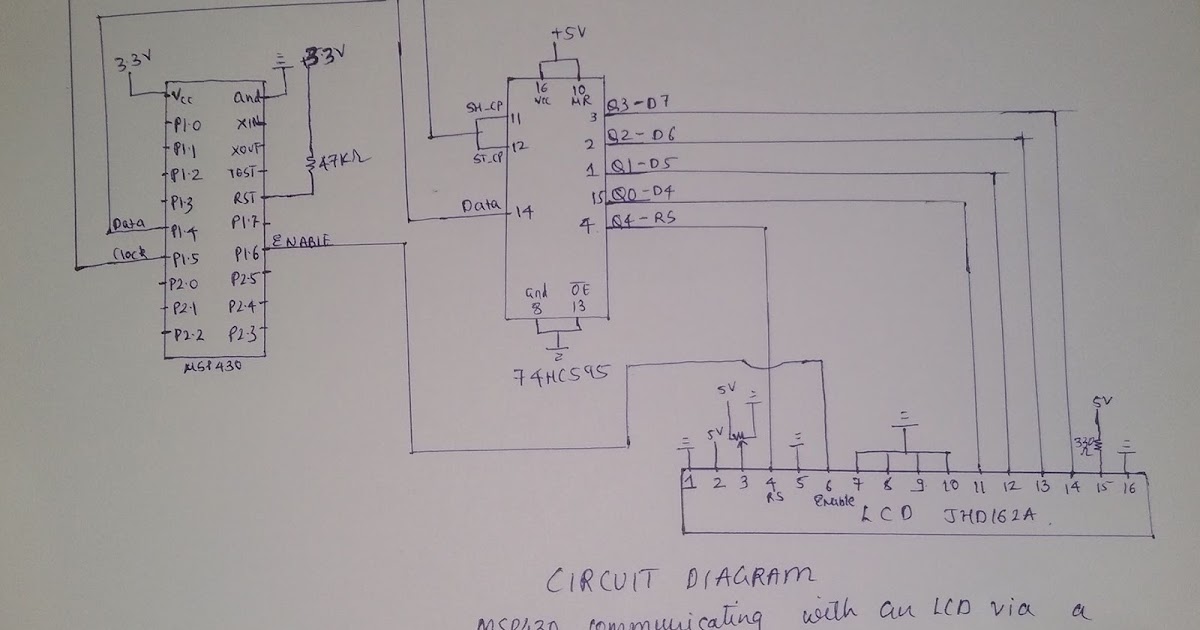 3.3V
3.3V
Vcc
P1.0
P1.1
P1.2
P1.3
P1.4
P1.5
P2.0
P2.1
P2.2
Gnd
XIN
XOUT
TEST
RST
P1.7
P1.6
P2.5
P2.4
P2.3
Data
Clock
47KΩ
ENABLE
MSP430
+5V
16 10
Vcc MR
SH_CP
11
12
ST_CP
Data 14
3 Q3-D7
2 Q2-D6
1 Q1-D5
15 Q0-D4
4 Q4-RS
Gnd OE
8 13
74HC595
5V
5V
5V
330Ω
1 2 3 4 5 6 7 8 9 10 11 12 13 14 15 16
RS Enable
LCD JHD162A
CIRCUIT DIAGRAM
MSP430 communicating with an LCD via a